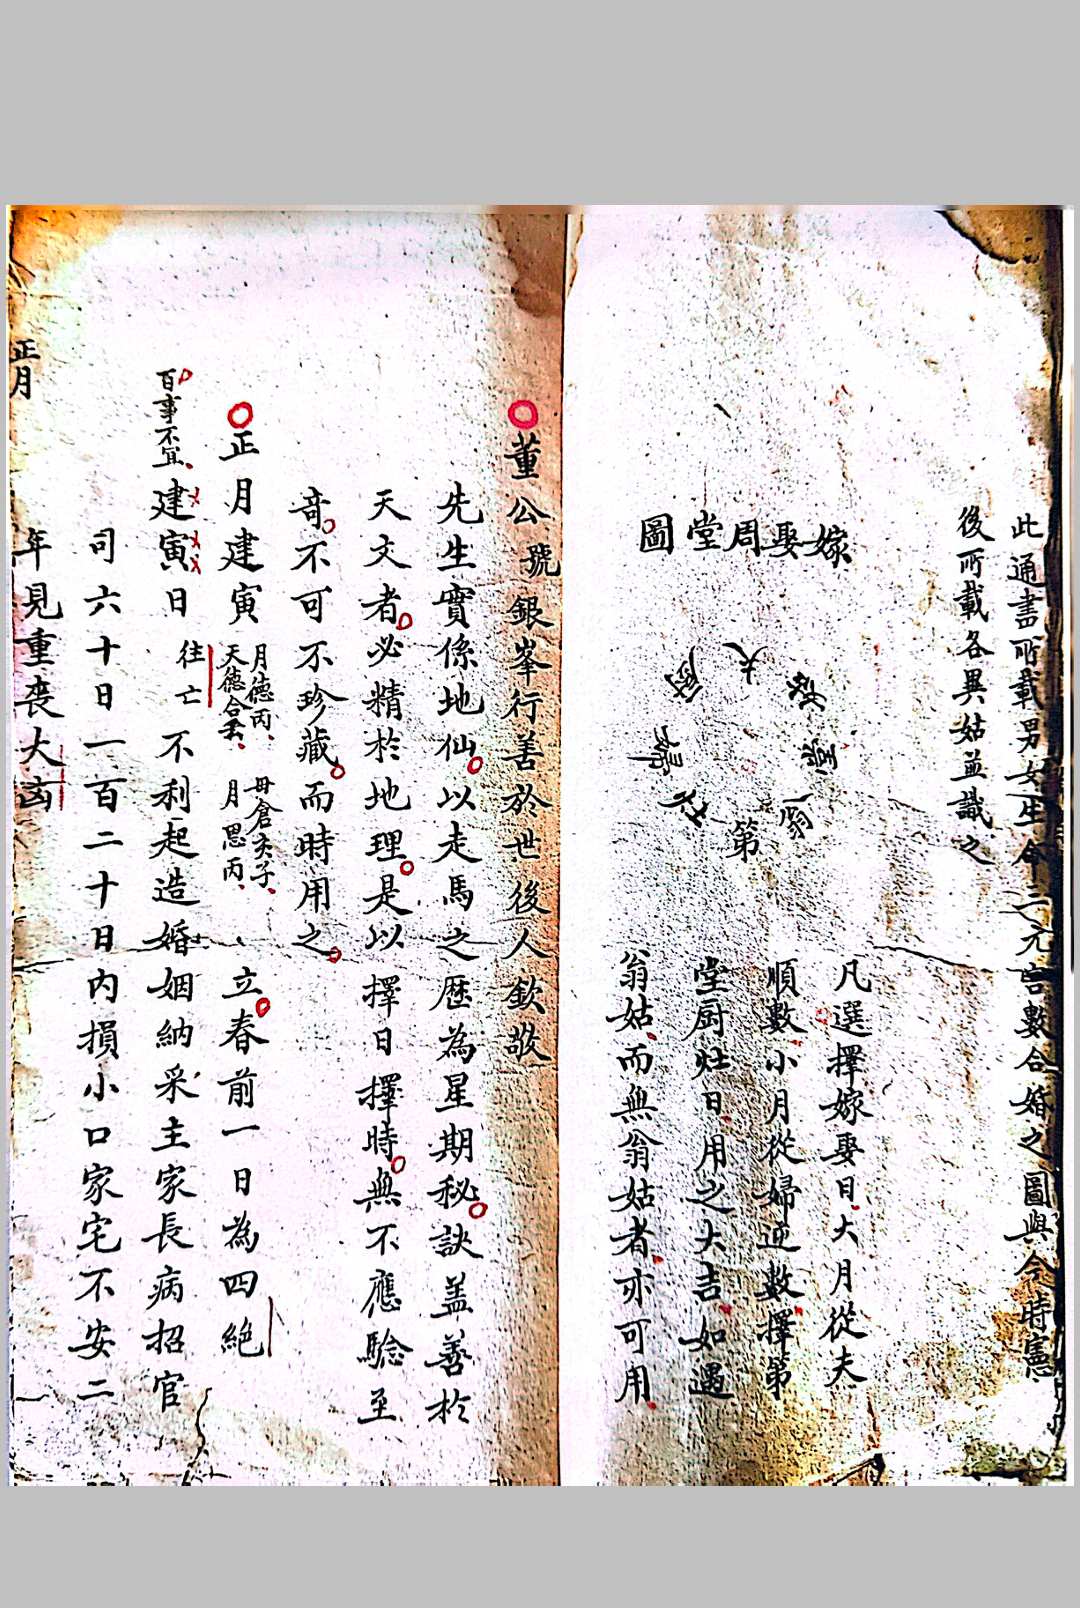 此通書所載男女生命三元吉數合婚之圖與今時憲
後所載各異姑並識之
嫁娶周堂圖
夫
姑
堂
翁
第
灶
婦
廚
凡選擇嫁娶日大月從夫
順數小月從婦逆數擇第
堂厨灶日用之大吉如遇
翁姑而無翁姑者亦可用
董公號銀峯行善於世後人欽敬
先生實係地仙以走馬之歷為星期秘訣盖善於
天文者必精於地理是以擇日擇時無不應驗至
竒不可不珍藏而時用之
正月建寅
月德丙
天德合壬
母倉亥子
月恩丙
立春前一日為四絕
百事不宜
建寅日
往亡
不利起造婚姻納采主家長病招官
司六十日一百二十日内損小口家宅不安二
年見重喪大凶
正月